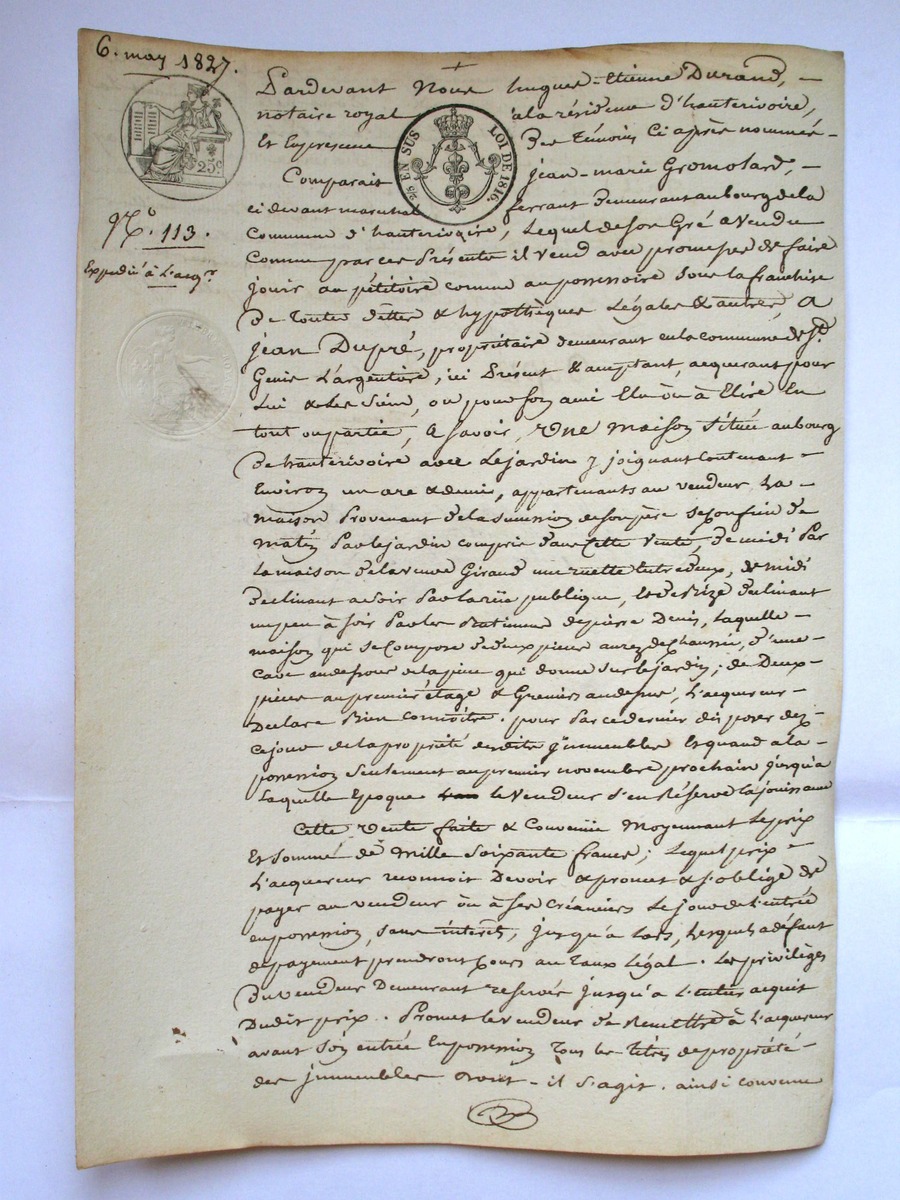 6. may 1827.
25c.
2/5 EN SUS LOI DE 1816.
N.o 113.
Expedié à L'acqr
Pardevant Nous hugues-Etienne Durand,
notaire royal à la résidence d'hauterivoire,
Et En presence Des Témoins Ci après nommés
Comparait jean-marie Gromolard,
ci devant marechal ferrant demeurant au bourg de la
Commune d'hauterivoire, Lequel de son Gré a Vendu
Comme par ces Présentes il Vend avec promesse de faire
jouir au pétitoire comme au possessoire Sous la franchise
De toutes dettes & hypothèques Légales & autres, A
jean Dupré, propriétaire demeurant en la commune de St
Genis L'argentiere, ici Présent & acceptant, acquerant pour
Lui & Les Siens, ou pour son ami Elu ou à Elire En
tout ou partie, A Savoir, Une maison Située au bourg
De hauterivoire avec Le jardin y joignant Contenant
Environ un are & demie, appartenants au vendeur La
maison Provenant de la succession de son père Se Confein de
matin Par le jardin compris dans Cette Vente, De midi Par
La maison de la veuve Giraud une ruette Entre deux, de midi
declinant a soir Par la rüe publique, Et de Bize declinant
un peu à Soir Par les Batimens de pierre Denis, Laquelle
maison qui Se Compose de deux pieces au rez de Chaussée, d'une
Cave au dessous de la pièce qui donne Sur le jardin; de Deux
pièces au premier étage & Greniers au dessus, L'acquereur
Declare Bien Connoitre. pour Par ce dernier disposer dez
ce jour de la propriété desdits immeubles Et quand a la
possession Seulement au premier novembre prochain jusqu'a
Laquelle Epoque le Vendeur s'en Réserve la jouissance
Cette Vente faite & Convenüe Moyennant Le prix
Et Somme de Mille Soixante francs; Lequel prix
L'acquereur reconnoit Devoir & promet & s'oblige de
payer au vendeur ou à Ses Créanciers Le jour de L'entrée
en possession, Sans intérêts, jusqu'a Lors, Lesquels a défaut
de payement prendront Cours au Taux Légal. Les privilèges
Du vendeur Demeurant reservés jusqu'a L'entier acquit
Dudit prix. Promet le vendeur de Remettre à L'acquereur
avant Son entrée En possession Tous les titres de propriété
des jmmeubles dont il S'agit. ainsi Convenu